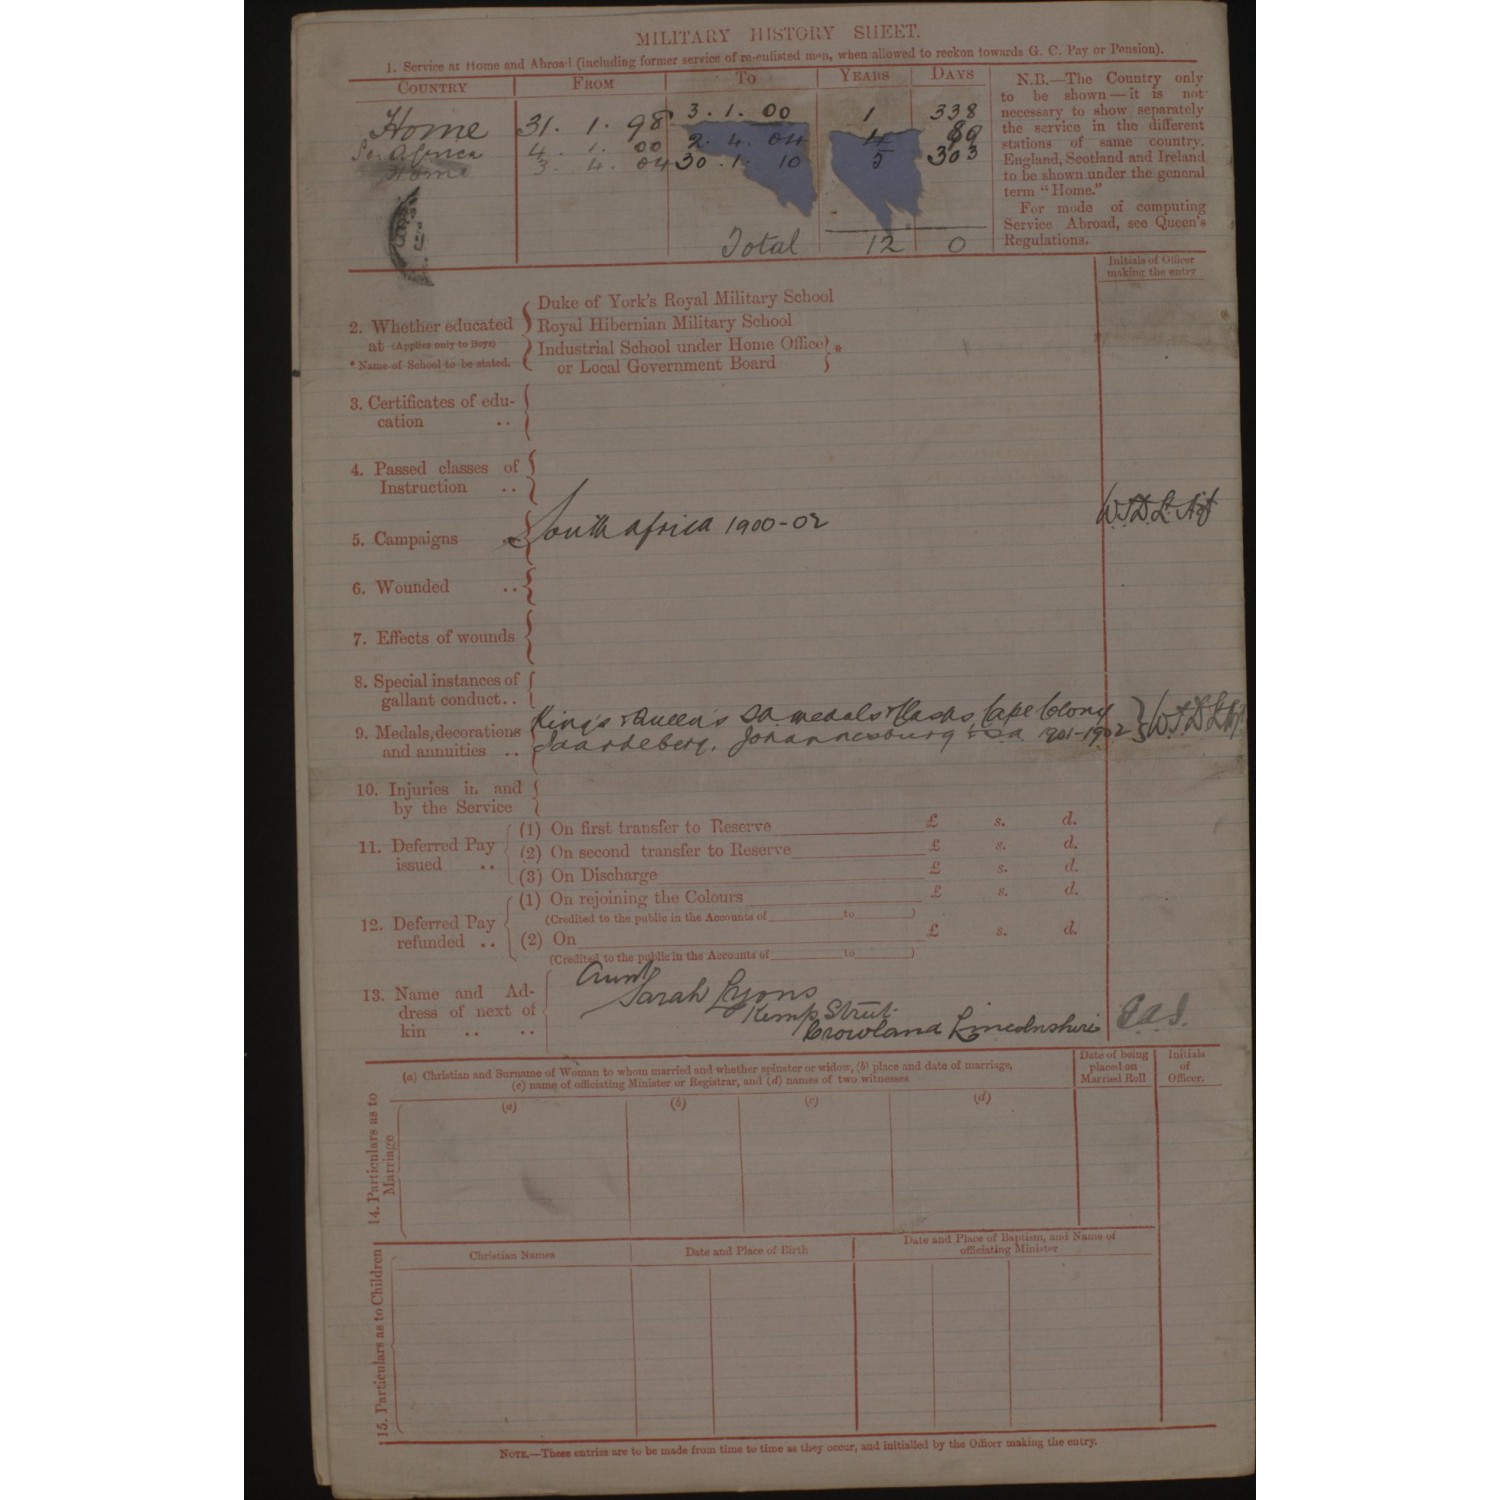 MILITARY HISTORY SHEET.
1. Service at Home and Abroad (including former service of re-enlisted men, when allowed to reckon towards G. C. Pay or Pension).
COUNTRY FROM TO YEARS DAYS
Home 31. 1. 98 3. 1. 00 1 338
So. Africa 4. 1. 00 2. 4. 04 4
Home 3. 4. 04 30. 1. 10 5 303
Total 12 0
N.B.—The Country only
to be shown—it is not
necessary to show separately
the service in the different
stations of same country.
England, Scotland and Ireland
to be shown under the general
term "Home."
For mode of computing
Service Abroad, see Queen's
Regulations.
Initials of Officer
making the entry
2. Whether educated
at (Applies only to Boys)
* Name of School to be stated.
Duke of York's Royal Military School
Royal Hibernian Military School
Industrial School under Home Office
or Local Government Board *
3. Certificates of edu-
cation ..
4. Passed classes of
Instruction ..
5. Campaigns South Africa 1900-02
6. Wounded ..
7. Effects of wounds
8. Special instances of
gallant conduct..
9. Medals, decorations
and annuities ..
King's & Queen's SA medals & Clasps Cape Colony
Paardeberg, Johannesburg & SA 1901-1902
10. Injuries in and
by the Service
11. Deferred Pay
issued ..
(1) On first transfer to Reserve £ s. d.
(2) On second transfer to Reserve £ s. d.
(3) On Discharge £ s. d.
12. Deferred Pay
refunded ..
(1) On rejoining the Colours £ s. d.
(Credited to the public in the Accounts of to )
(2) On £ s. d.
(Credited to the public in the Accounts of to )
13. Name and Ad-
dress of next of
kin .. ..
Aunt
Sarah Lyons
Kemp Street.
Crowland Lincolnshire
14. Particulars as to
Marriage
(a) Christian and Surname of Woman to whom married and whether spinster or widow, (b) place and date of marriage,
(c) name of officiating Minister or Registrar, and (d) names of two witnesses
Date of being
placed on
Married Roll
Initials
of
Officer.
(a) (b) (c) (d)
15. Particulars as to Children
Christian Names
Date and Place of Birth
Date and Place of Baptism, and Name of
officiating Minister
NOTE.—These entries are to be made from time to time as they occur, and initialled by the Officer making the entry.